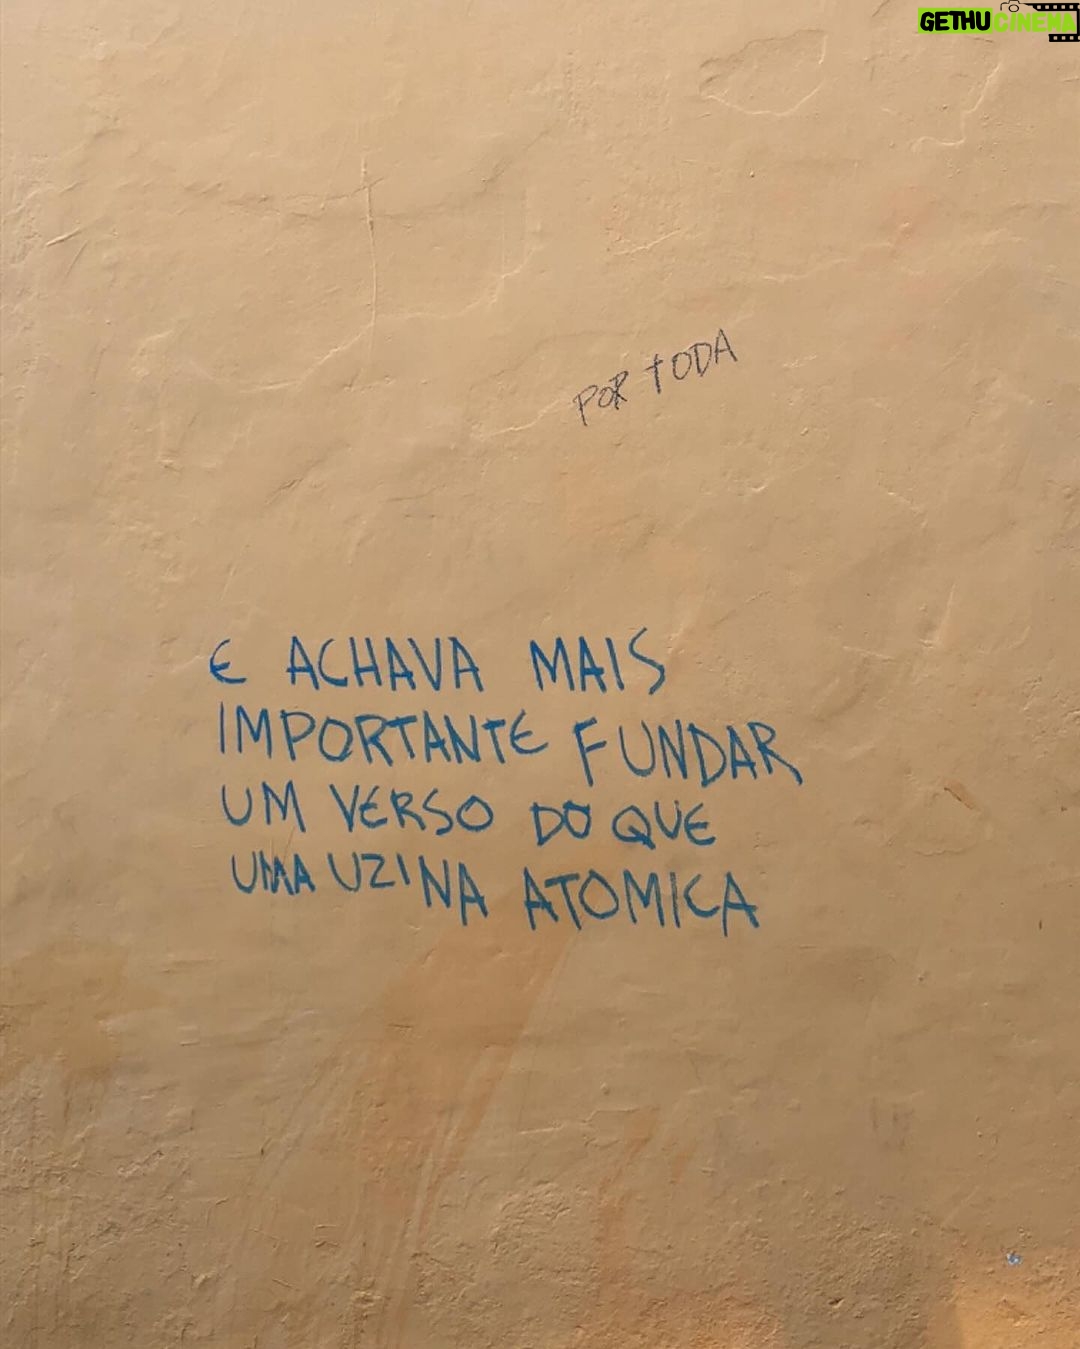 GETHUCINEMA
POR TODA
E ACHAVA MAIS
IMPORTANTE FUNDAR
UM VERSO DO QUE
UMA UZINA ATOMICA